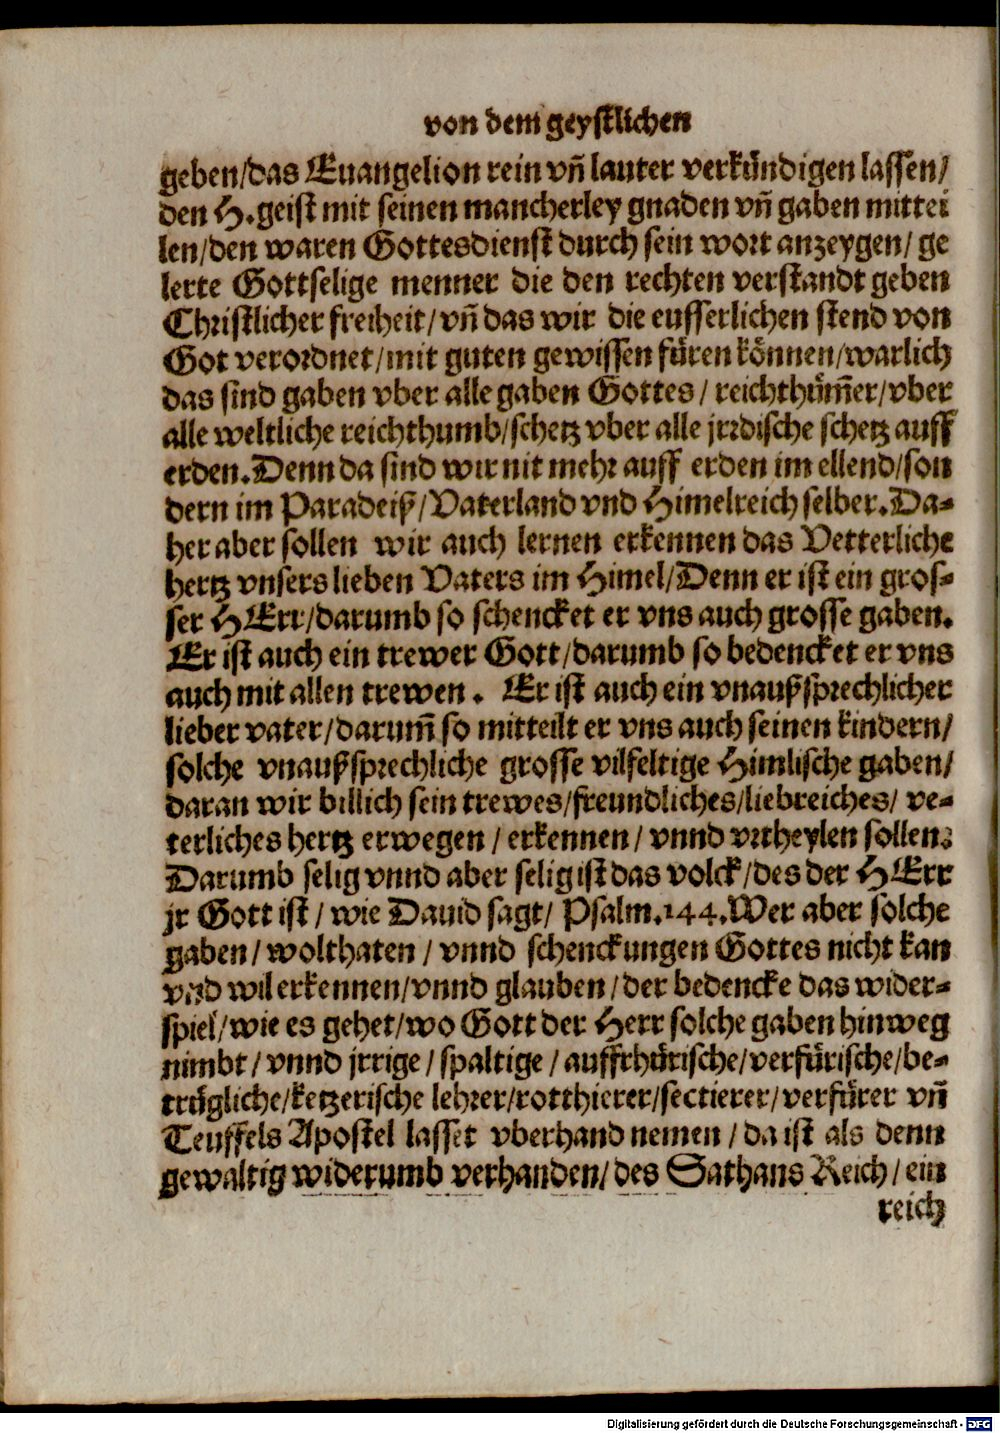 von dem geystlichen
geben/das Euangelion rein vñ lauter verkündigen lassen/
den H. geist mit seinen mancherley gnaden vñ gaben mittei
len/den waren Gottesdienst durch sein wort anzeygen/ ge
lerte Gottselige menner die den rechten verstandt geben
Christlicher freiheit/vñ das wir die eusserlichen stend von
Got verordnet/mit guten gewissen füren können/warlich
das sind gaben vber alle gaben Gottes/ reichthüm̃er/vber
alle weltliche reichthumb/schetz vber alle jrrdische schetz auff
erden. Denn da sind wir nit mehr auff erden im ellend/son
dern im Paradeiß/Vaterland vnd Himelreich selber. Da-
her aber sollen wir auch lernen erkennen das Vetterliche
hertz vnsers lieben Vaters im Himel/Denn er ist ein gros-
ser HErr/darumb so schencket er vns auch grosse gaben.
Er ist auch ein trewer Gott/darumb so bedencket er vns
auch mit allen trewen. Er ist auch ein vnaußsprechlicher
lieber vater/darum̃ so mitteilt er vns auch seinen kindern/
solche vnaußsprechliche grosse vilfeltige Himlische gaben/
daran wir billich sein trewes/freundliches/liebreiches/ ve-
terliches hertz erwegen/ erkennen/ vnnd vrtheylen sollen.
Darumb selig vnnd aber selig ist das volck/des der HErr
jr Gott ist/ wie Dauid sagt/ Psalm. 144. Wer aber solche
gaben/ wolthaten/ vnnd schenckungen Gottes nicht kan
vnd wil erkennen/vnnd glauben/der bedencke das wider-
spiel/wie es gehet/wo Gott der Herr solche gaben hinweg
nimbt/ vnnd jrrige/ spaltige/ auffrhürische/verfürische/be-
trügliche/ketzerische lehrer/rotthierer/sectierer/verfürer vñ
Teuffels Apostel lasset vberhand nemen/ da ist als denn
gewaltig widerumb verhanden/des Sathans Reich/ ein
reich
Digitalisierung gefördert durch die Deutsche Forschungsgemeinschaft - DFG